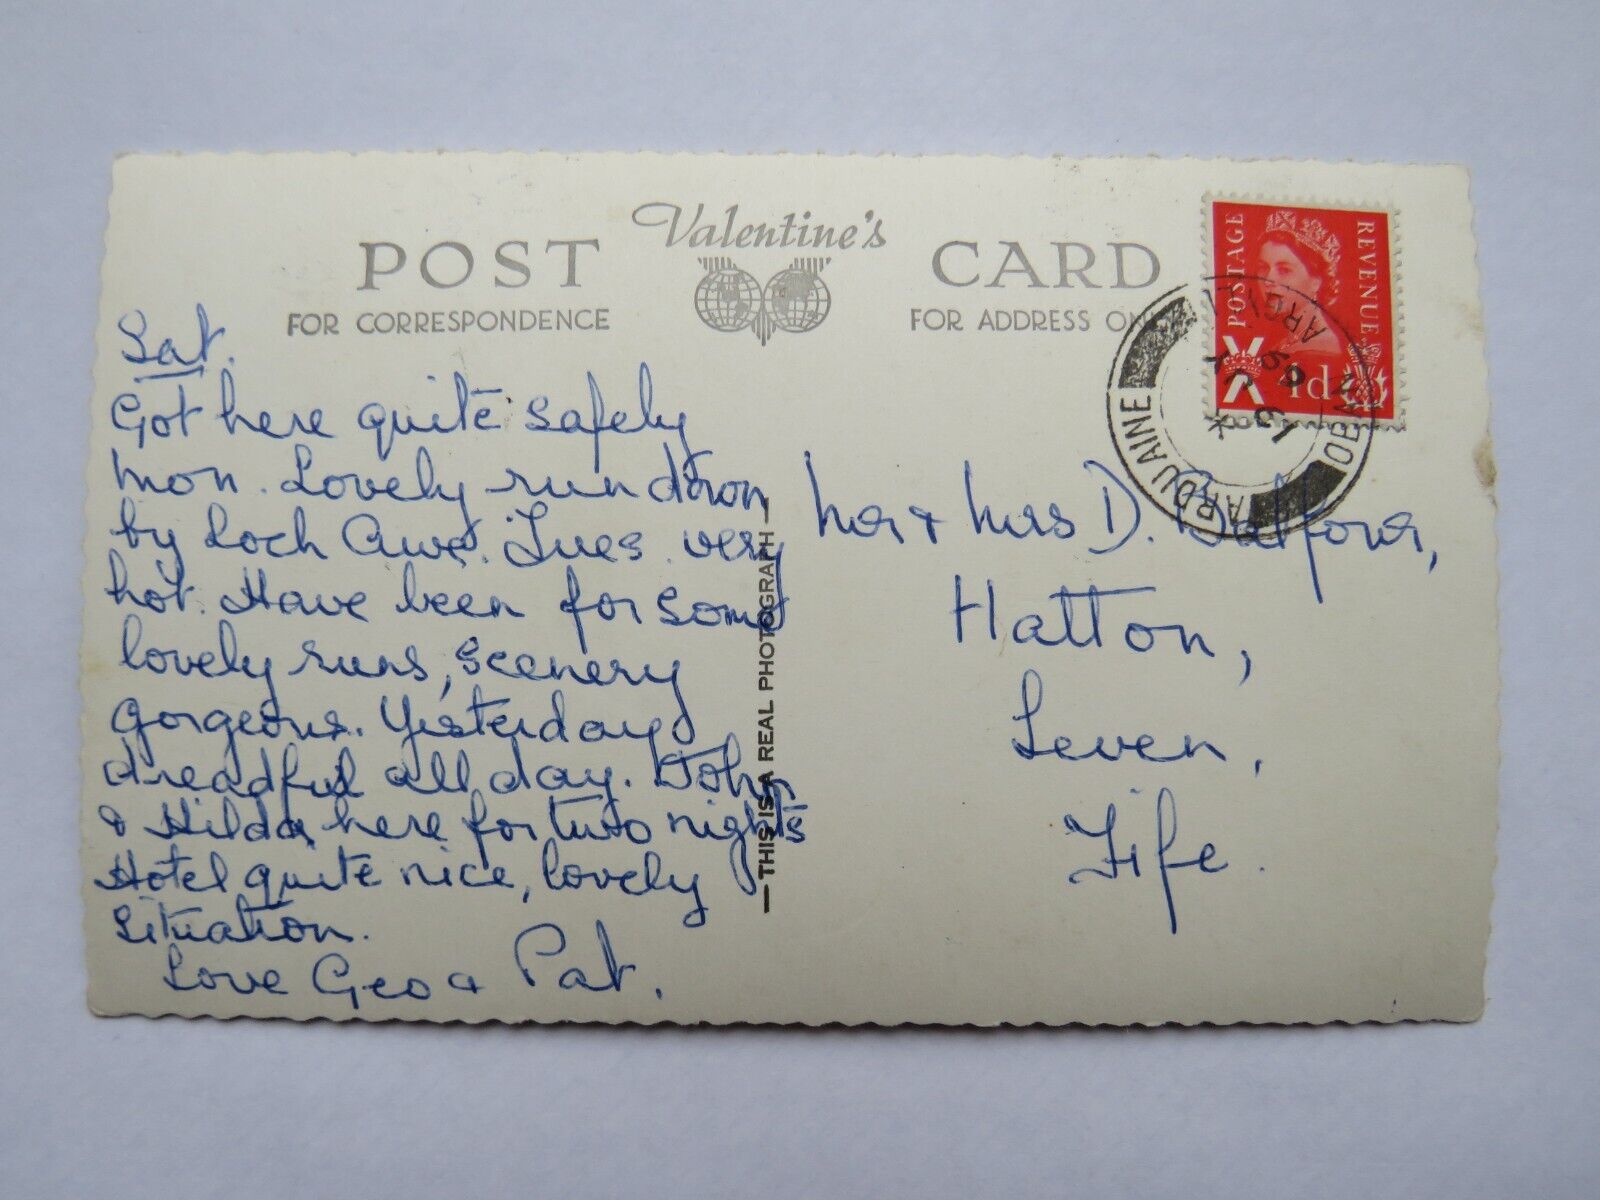 POST Valentine's CARD
FOR CORRESPONDENCE
FOR ADDRESS ON
POSTAGE
REVENUE
4d
ARDUAINE
OBAN
ARGYLL
69
Sat.
Got here quite safely
Mon. Lovely run down
by Loch Awe. Tues. very
hot. Have been for some
lovely runs, scenery
gorgeous. Yesterday
dreadful all day. John
& Hilda here for two nights
Hotel quite nice, lovely
situation.
Love Geo & Pat.
THIS IS A REAL PHOTOGRAPH
Mr & Mrs D. Balfour,
Hatton,
Leven,
Fife.